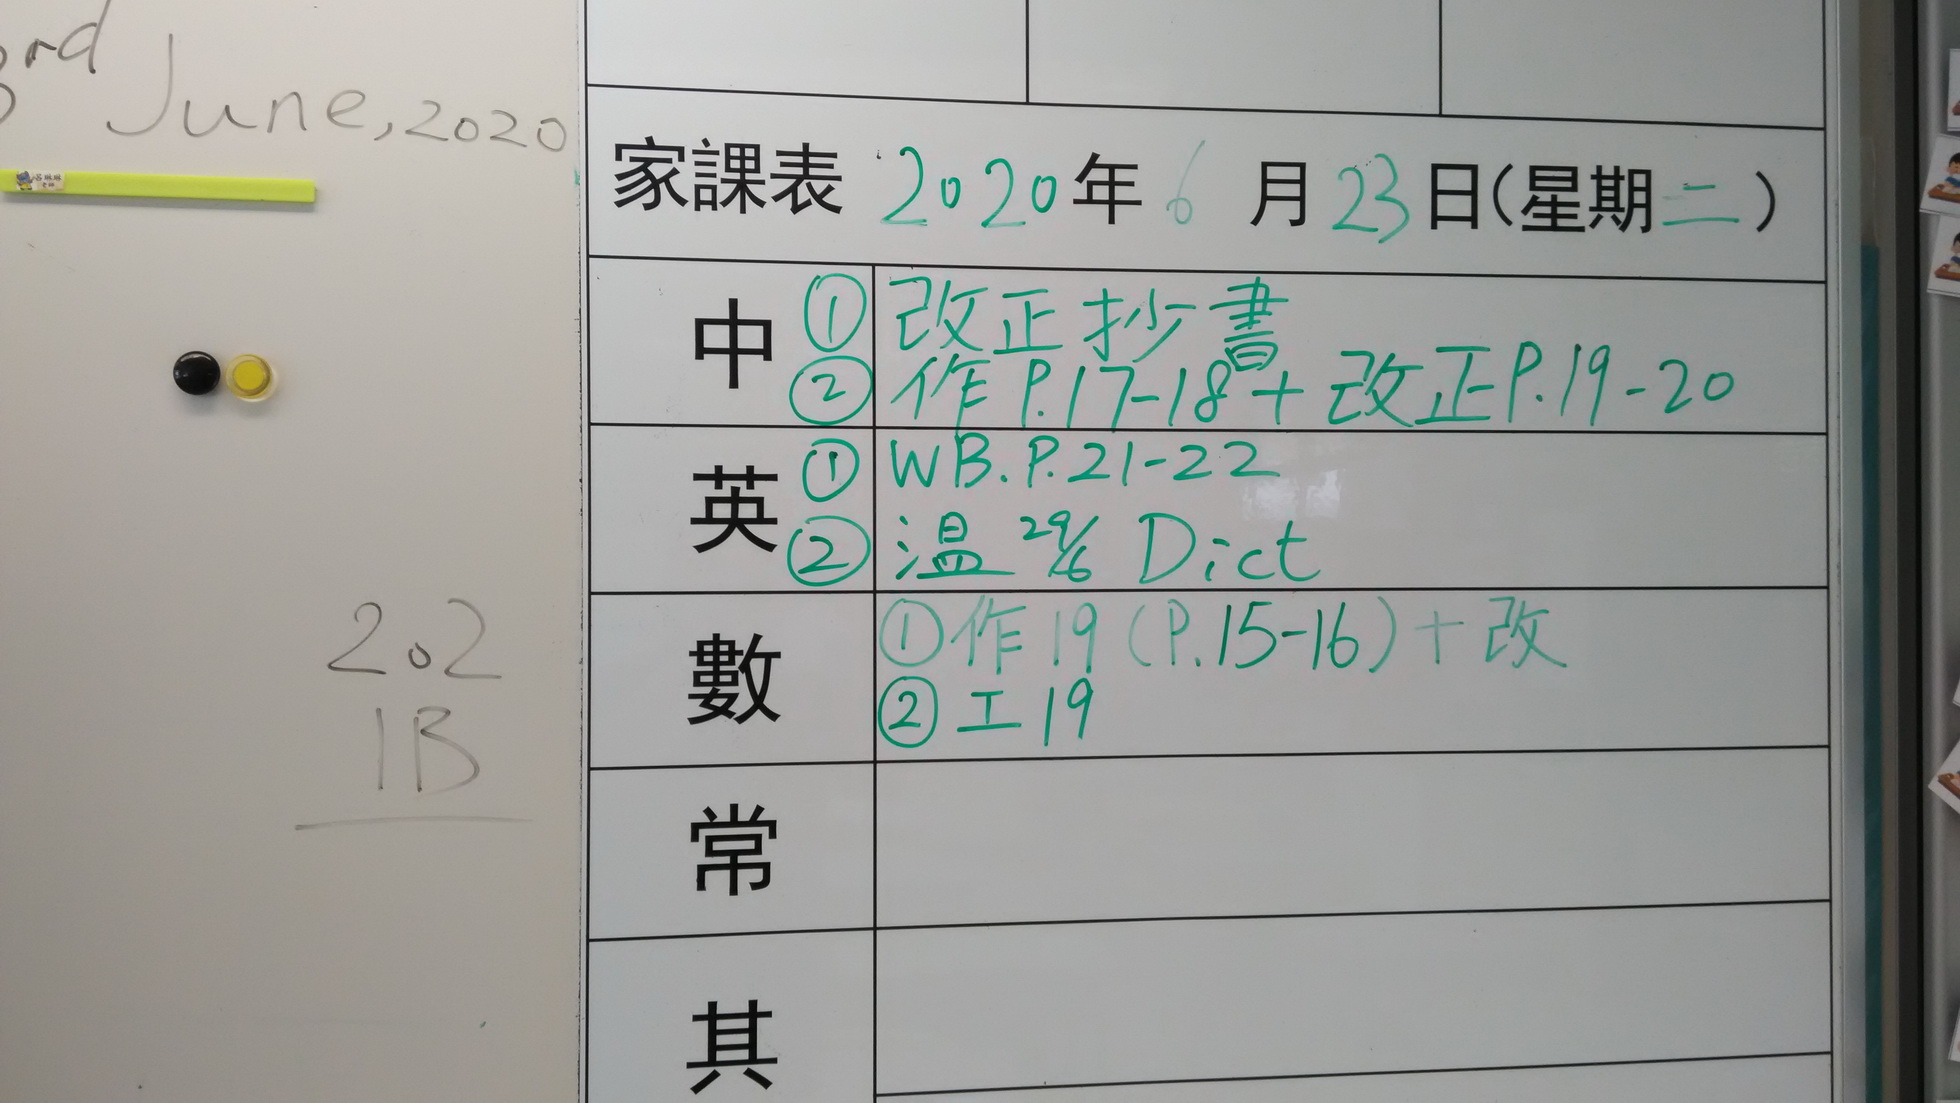 3rd June, 2020
呂琳琳
老師
202
1B
家課表 2020年6月23日(星期二)
中 ① 改正抄書
② 作P.17-18+改正P.19-20
英 ① WB.P.21-22
② 溫 29/6 Dict
數 ①作19(P.15-16)+改
②工19
常
其